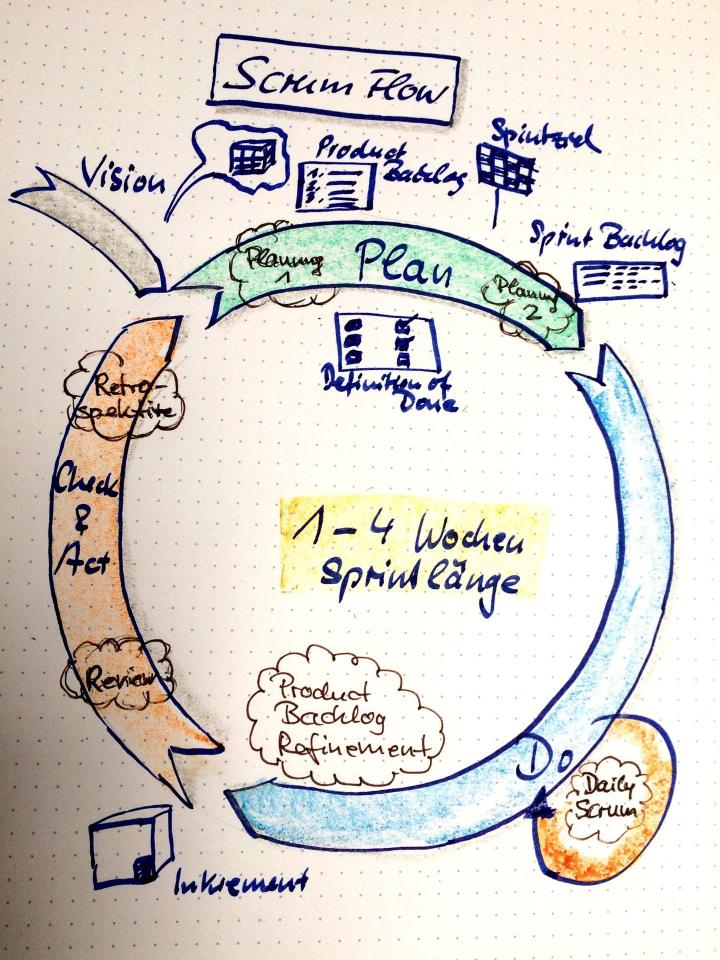 Scrum Flow
Vision
Product
Backlog
Sprintziel
Sprint Backlog
Planning
1
Plan
Planning
2
Definition of
Done
Retro-
spektive
Check
&
Act
1-4 Wochen
Sprintlänge
Review
Product
Backlog
Refinement
Do
Daily
Scrum
Inkrement